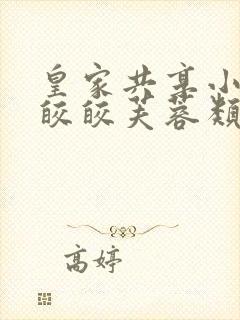 皇家共享小
皎皎芙蓉类
高婷